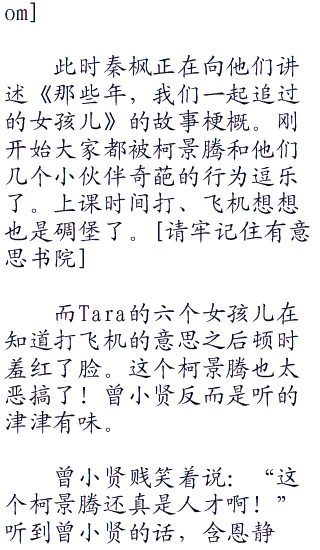 om]
此时秦枫正在向他们讲
述《那些年，我们一起追过
的女孩儿》的故事梗概。刚
开始大家都被柯景腾和他们
几个小伙伴奇葩的行为逗乐
了。上课时间打、飞机想想
也是碉堡了。[请牢记住有意
思书院]
而Tara的六个女孩儿在
知道打飞机的意思之后顿时
羞红了脸。这个柯景腾也太
恶搞了！曾小贤反而是听的
津津有味。
曾小贤贱笑着说：“这
个柯景腾还真是人才啊！”
听到曾小贤的话，含恩静